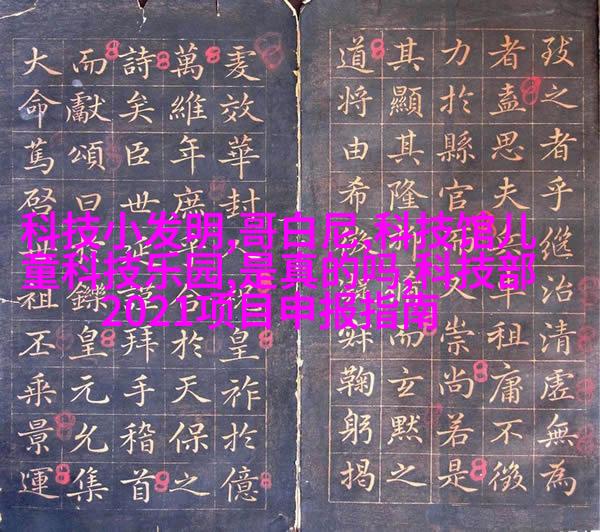 致之者乎繼治清虛無為
者盍思夫祖庸不
力於縣官又崇尚若是
其顯其隆將而玄默之
道將由希鞠躬揭
效華封皇祚於億
萬維年合於天保之
詩矣臣世拜手稽首
而獻頌曰鑠皇元允集
大命篤祖丕乘景運
科技小发明,哥白尼,科技馆儿
童科技乐园,是真的吗,科技部
2021项目申报指南